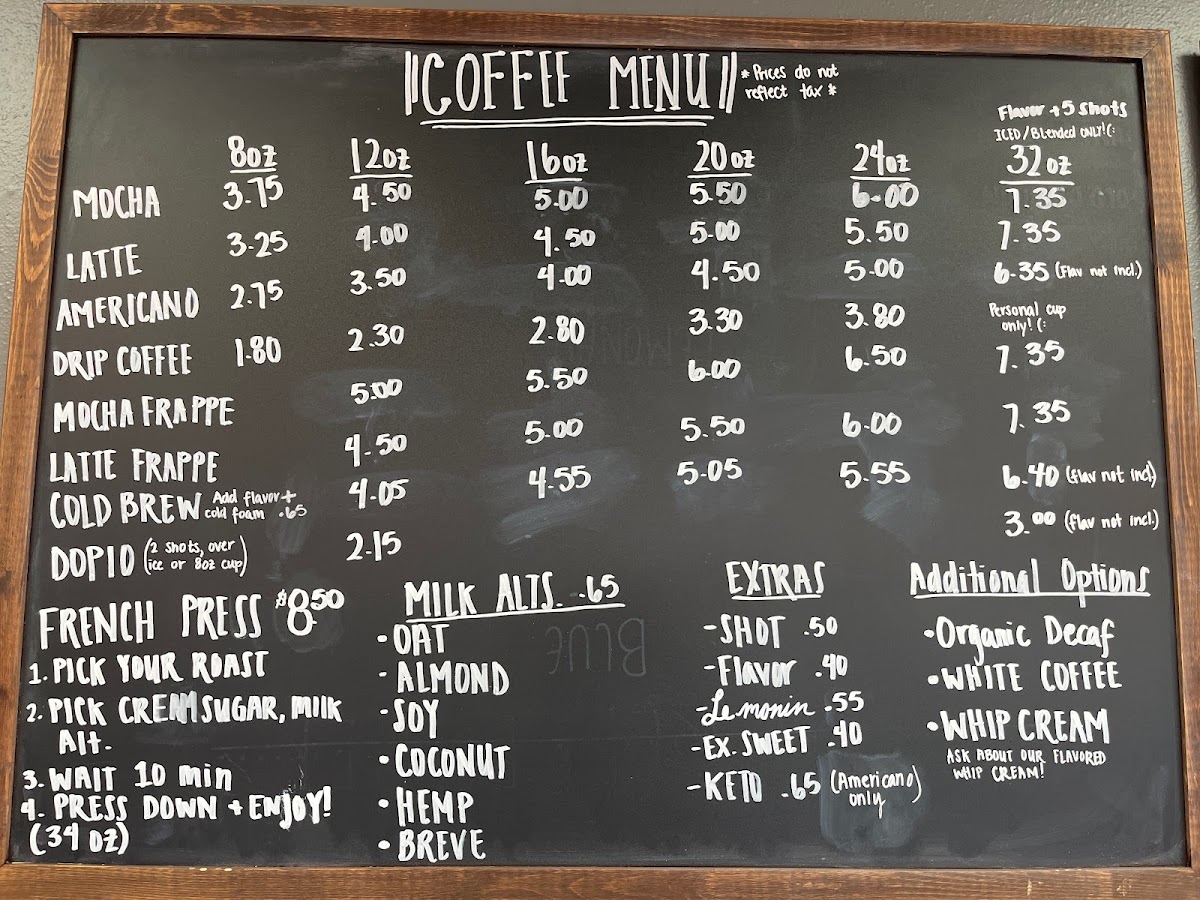 COFFEE MENU
*Prices do not
reflect tax*
Flavor +5 shots
ICED/Blended ONLY!(:
8oz 12oz 16oz 20oz 24oz 32oz
MOCHA 3.75 4.50 5.00 5.50 6.00 7.35
LATTE 3.25 4.00 4.50 5.00 5.50 7.35
AMERICANO 2.75 3.50 4.00 4.50 5.00 6.35 (Flav not incl.)
DRIP COFFEE 1.80 2.30 2.80 3.30 3.80 Personal cup
only! (:
MOCHA FRAPPE 5.00 5.50 6.00 6.50 7.35
LATTE FRAPPE 4.50 5.00 5.50 6.00 7.35
COLD BREW Add flavor +
cold foam .65 4.05 4.55 5.05 5.55 6.40 (flav not incl)
DOPIO (2 shots, over
ice or 8oz cup) 2.15 3.00 (flav not incl.)
FRENCH PRESS $8.50
1. PICK YOUR ROAST
2. PICK CREAM SUGAR, MILK
Alt.
3. WAIT 10 min
4. PRESS DOWN + ENJOY!
(34 oz)
MILK ALTS. .65
•OAT
•ALMOND
•SOY
•COCONUT
•HEMP
•BREVE
BLUE
EXTRAS
-SHOT .50
-Flavor .40
-Lemonin .55
-EX. SWEET .40
-KETO .65 (Americano)
only
Additional Options
•Organic Decaf
•WHITE COFFEE
•WHIP CREAM
ASK ABOUT OUR FLAVORED
WHIP CREAM!